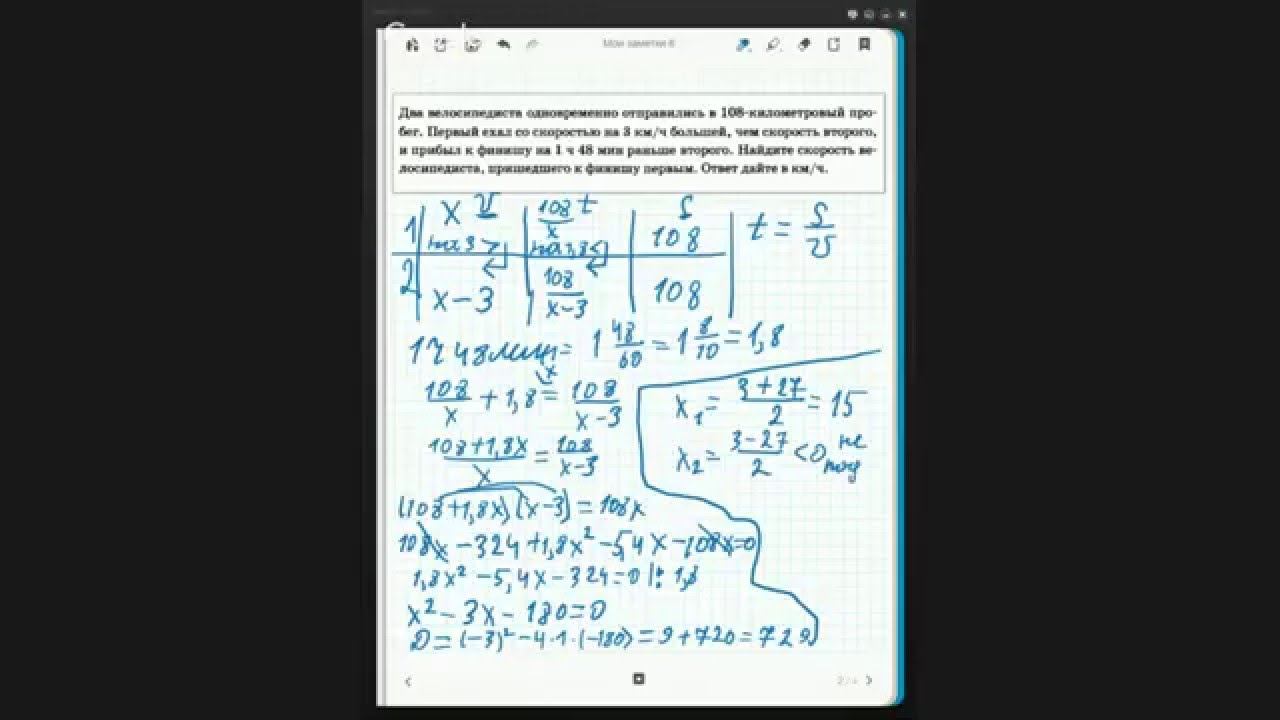 Мои заметки 6
Два велосипедиста одновременно отправились в 108-километровый про-
бег. Первый ехал со скоростью на 3 км/ч большей, чем скорость второго,
и прибыл к финишу на 1 ч 48 мин раньше второго. Найдите скорость ве-
лосипедиста, пришедшего к финишу первым. Ответ дайте в км/ч.
v t S
1 x 108/x 108 t = S/v
на 3 > на 1,8 <
2 x-3 108/(x-3) 108
1 ч 48 мин = 1 48/60 = 1 8/10 = 1,8
108/x + 1,8 = 108/(x-3)
(108+1,8x)/x = 108/(x-3)
(108+1,8x)(x-3) = 108x
108x - 324 + 1,8x² - 5,4x - 108x = 0
1,8x² - 5,4x - 324 = 0 |: 1,8
x² - 3x - 180 = 0
D = (-3)² - 4·1·(-180) = 9 + 720 = 729
x₁ = (3+27)/2 = 15
x₂ = (3-27)/2 < 0 не
под
2/4